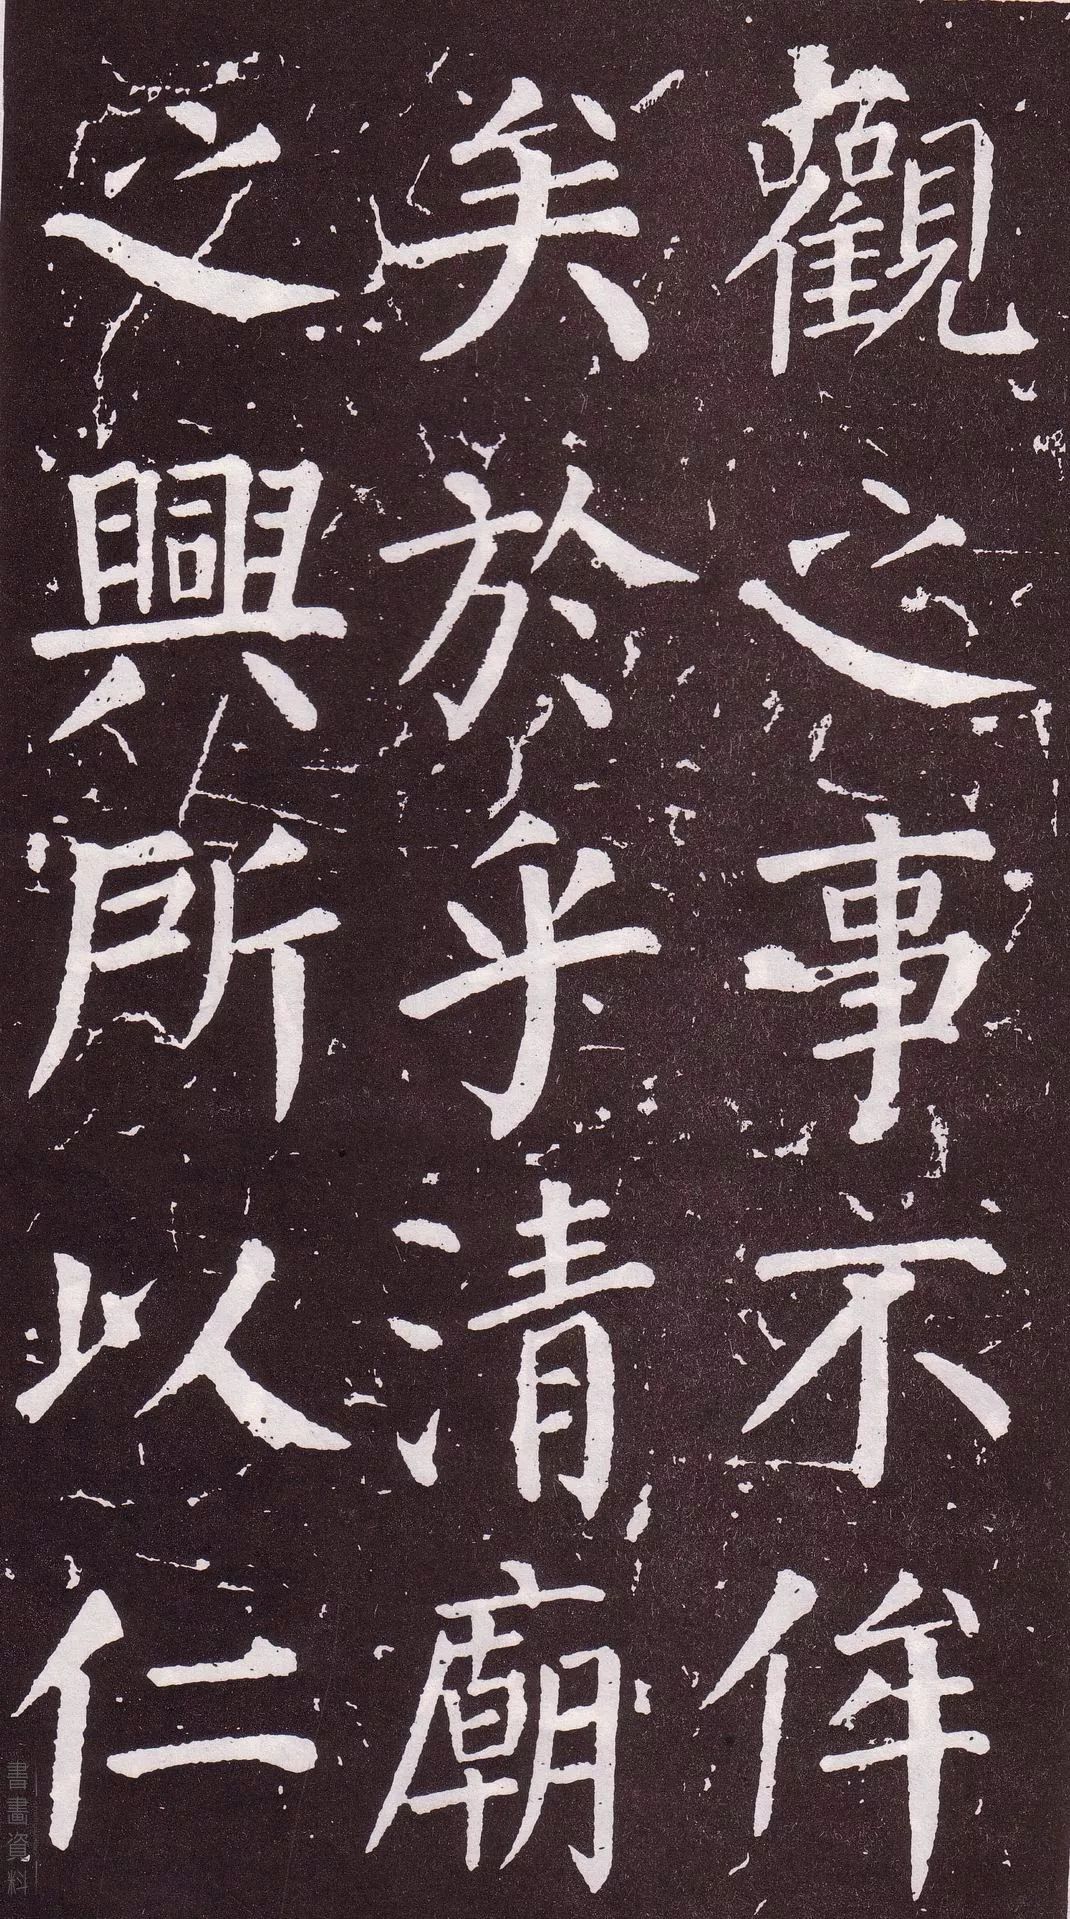 觀之事不侔
矣於乎清廟
之興所以仁
書畫資料